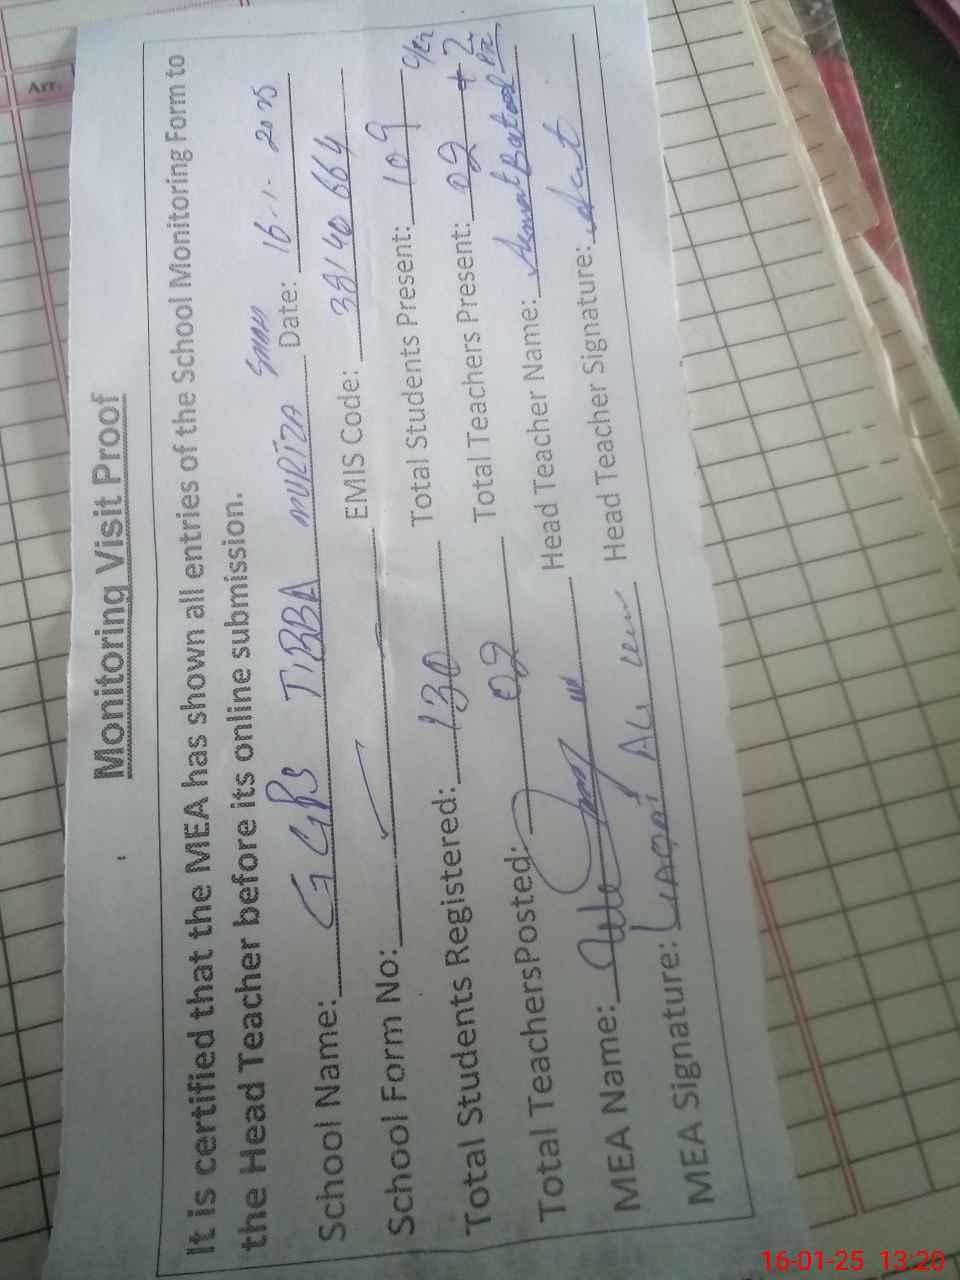 Arr.
Monitoring Visit Proof
It is certified that the MEA has shown all entries of the School Monitoring Form to
the Head Teacher before its online submission.
School Name: GGPS TIBBA MURTZA Date: 16-1-2025
School Form No: EMIS Code: 38140664
Total Students Registered: 130 Total Students Present: 109
Total TeachersPosted: 02 Total Teachers Present: 02 + 2
MEA Name: Head Teacher Name: Batool
MEA Signature: Liaqat Ali Head Teacher Signature:
16-01-25 13:20